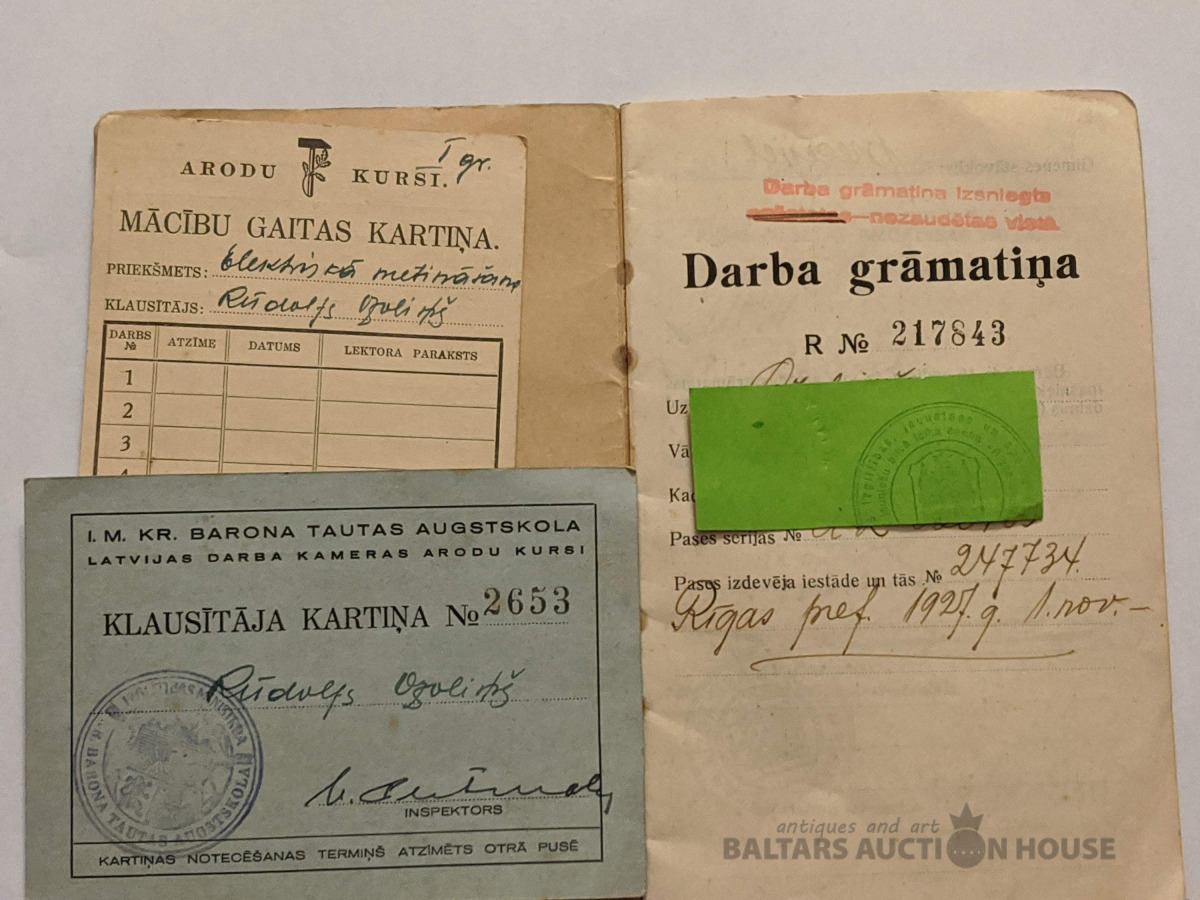 ARODU KURSI. I gr.
MĀCĪBU GAITAS KARTIŅA.
PRIEKŠMETS: Elektriskā metināšana
KLAUSĪTĀJS: Rūdolfs Ozoliņš
DARBS № ATZĪME DATUMS LEKTORA PARAKSTS
1
2
3
I. M. KR. BARONA TAUTAS AUGSTSKOLA
LATVIJAS DARBA KAMERAS ARODU KURSI
KLAUSĪTĀJA KARTIŅA № 2653
Rūdolfs Ozoliņš
INSPEKTORS
KARTIŅAS NOTECĒŠANAS TERMIŅŠ ATZĪMĒTS OTRĀ PUSĒ
KR. BARONA TAUTAS AUGSTSKOLA
Darba grāmatiņa izsniegta
nozaudētas vietā
Darba grāmatiņa
R № 217843
Uz
Vā
Pases sērijas №
Pases izdevēja iestāde un tās № 247734.
Rīgas pref. 1927. g. 1. nov. —
antiques and art
BALTARS AUCTION HOUSE